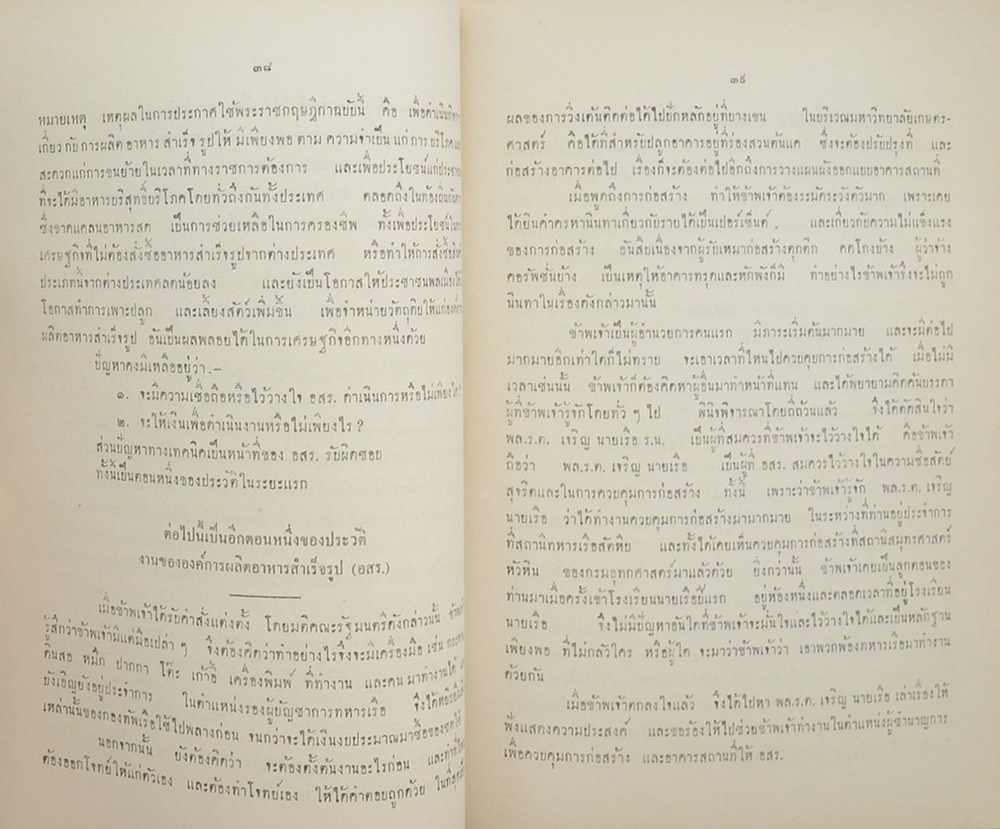 ๓๘
หมายเหตุ เหตุผลในการประกาศใช้พระราชกฤษฎีกาฉบับนี้ คือ เพื่อดำเนินกิจการ
เกี่ยวกับการผลิตอาหารสำเร็จรูปให้มีเพียงพอตามความจำเป็นแก่การบริโภค
สะดวกแก่การขนย้ายในเวลาที่ทางราชการต้องการ และเพื่อประโยชน์แก่ประชาชน
ที่จะได้มีอาหารบริสุทธิ์บริโภคโดยทั่วถึงกันทั้งประเทศ ตลอดถึงในท้องถิ่นกันดาร
ซึ่งขาดแคลนอาหารสด เป็นการช่วยเหลือในการครองชีพ ทั้งเพื่อประโยชน์ใน
เศรษฐกิจที่ไม่ต้องสั่งซื้ออาหารสำเร็จรูปจากต่างประเทศ หรือทำให้การสั่งซื้อ
ประเภทนี้จากต่างประเทศลดน้อยลง และยังเป็นโอกาสให้ประชาชนพลเมืองได้มี
โอกาสทำการเพาะปลูก และเลี้ยงสัตว์เพิ่มขึ้น เพื่อจำหน่ายวัตถุดิบให้แก่องค์การ
ผลิตอาหารสำเร็จรูป อันเป็นผลพลอยได้ในการเศรษฐกิจอีกทางหนึ่งด้วย
ปัญหาคงมีเหลืออยู่ว่า.–
๑. จะมีความเชื่อถือหรือไว้วางใจ อสร. ดำเนินการหรือไม่เพียงใด?
๒. จะให้เงินเพื่อดำเนินงานหรือไม่เพียงไร?
ส่วนปัญหาทางเทคนิคเป็นหน้าที่ของ อสร. รับผิดชอบ
ทั้งนี้เป็นตอนหนึ่งของประวัติในระยะแรก
ต่อไปนี้เป็นอีกตอนหนึ่งของประวัติ
งานขององค์การผลิตอาหารสำเร็จรูป (อสร.)
เมื่อข้าพเจ้าได้รับคำสั่งแต่งตั้ง โดยมติคณะรัฐมนตรีดังกล่าวนั้น
รู้สึกว่าข้าพเจ้ามีแต่มือเปล่า ๆ จึงต้องคิดว่าทำอย่างไรจึงจะมีเครื่องมือ เช่น กระดาษ
ดินสอ หมึก ปากกา โต๊ะ เก้าอี้ เครื่องพิมพ์ ที่ทำงาน และคนมาทำงานได้
ยังเอิญยังอยู่ประจำการ ในตำแหน่งรองผู้บัญชาการทหารเรือ จึงได้หยิบยืม
เหล่านั้นของกองทัพเรือใช้ไปพลางก่อน จนกว่าจะได้เงินงบประมาณมาซื้อของชดใช้
นอกจากนั้น ยังต้องคิดว่า จะต้องตั้งต้นงานอะไรก่อน
ต้องออกโจทย์ให้แก่ตัวเอง และต้องทำโจทย์เอง ให้ได้คำตอบถูกด้วย ในที่สุด
๓๙
ผลของการวิ่งเต้นติดต่อได้ไปปักหลักอยู่ที่บางเขน ในบริเวณมหาวิทยาลัยเกษตร–
ศาสตร์ คือได้ที่สำหรับปลูกอาคารอยู่ที่ร่องสวนตันแค ซึ่งจะต้องปรับปรุงที่ และ
ก่อสร้างอาคารต่อไป เรื่องก็จะต้องต่อไปอีกถึงการวางแผนผังออกแบบอาคารสถานที่
เมื่อพูดถึงการก่อสร้าง ทำให้ข้าพเจ้าต้องระมัดระวังตัวมาก เพราะเคย
ได้ยินคำครหานินทาเกี่ยวกับรายได้เป็นเปอร์เซ็นต์ . และเกี่ยวกับความไม่แข็งแรง
ของการก่อสร้าง อันสืบเนื่องจากผู้รับเหมาก่อสร้างทุกติก คดโกงบ้าง ผู้ว่าจ้าง
คอรัพชั่นบ้าง เป็นเหตุให้อาคารทรุดและหักพังก็มี ทำอย่างไรข้าพเจ้าจึงจะไม่ถูก
นินทาในเรื่องดังกล่าวมานั้น
ข้าพเจ้าเป็นผู้อำนวยการคนแรก มีภาระเริ่มต้นมากมาย และจะมีต่อไป
มากมายอีกเท่าใดก็ไม่ทราบ จะเอาเวลาที่ไหนไปควบคุมการก่อสร้างได้ เมื่อไม่มี
เวลาเช่นนั้น ข้าพเจ้าก็ต้องคิดหาผู้อื่นมาทำหน้าที่แทน และได้พยายามคิดค้นบรรดา
ผู้ที่ข้าพเจ้ารู้จักโดยทั่ว ๆ ไป พินิจพิจารณาโดยถี่ถ้วนแล้ว จึงได้ตัดสินใจว่า
พล.ร.ต. เจริญ นายเรือ ร.น. เป็นผู้ที่สมควรที่ข้าพเจ้าจะไว้วางใจได้ คือข้าพเจ้า
ถือว่า พล.ร.ต. เจริญ นายเรือ เป็นผู้ที่ อสร. สมควรไว้วางใจในความซื่อสัตย์
สุจริตและในการควบคุมการก่อสร้าง ทั้งนี้ เพราะว่าข้าพเจ้ารู้จัก พล.ร.ต. เจริญ
นายเรือ ว่าได้ทำงานควบคุมการก่อสร้างมามากมาย ในระหว่างที่ท่านอยู่ประจำการ
ที่สถานีทหารเรือสัตหีบ และทั้งได้เคยเห็นควบคุมการก่อสร้างที่สถานีสมุทรศาสตร์
หัวหิน ของกรมอุทกศาสตร์มาแล้วด้วย ยิ่งกว่านั้น ข้าพเจ้าเคยเป็นลูกตอนของ
ท่านมาเมื่อครั้งเข้าโรงเรียนนายเรือปีแรก อยู่ห้องหนึ่งและตลอดเวลาที่อยู่โรงเรียน
นายเรือ จึงไม่มีปัญหาอันใดที่ข้าพเจ้าจะมั่นใจและไว้วางใจได้และเป็นหลักฐาน
เพียงพอ ที่ไม่กลัวใคร หรือผู้ใด จะมาว่าข้าพเจ้าว่า เอาพวกพ้องทหารเรือมาทำงาน
ด้วยกัน
เมื่อข้าพเจ้าตกลงใจแล้ว จึงได้ไปหา พล.ร.ต. เจริญ นายเรือ เล่าเรื่องให้
ฟังแสดงความประสงค์ และขอร้องให้ไปช่วยข้าพเจ้าทำงานในตำแหน่งผู้ชำนาญการ
เพื่อควบคุมการก่อสร้าง และอาคารสถานที่ให้ อสร.